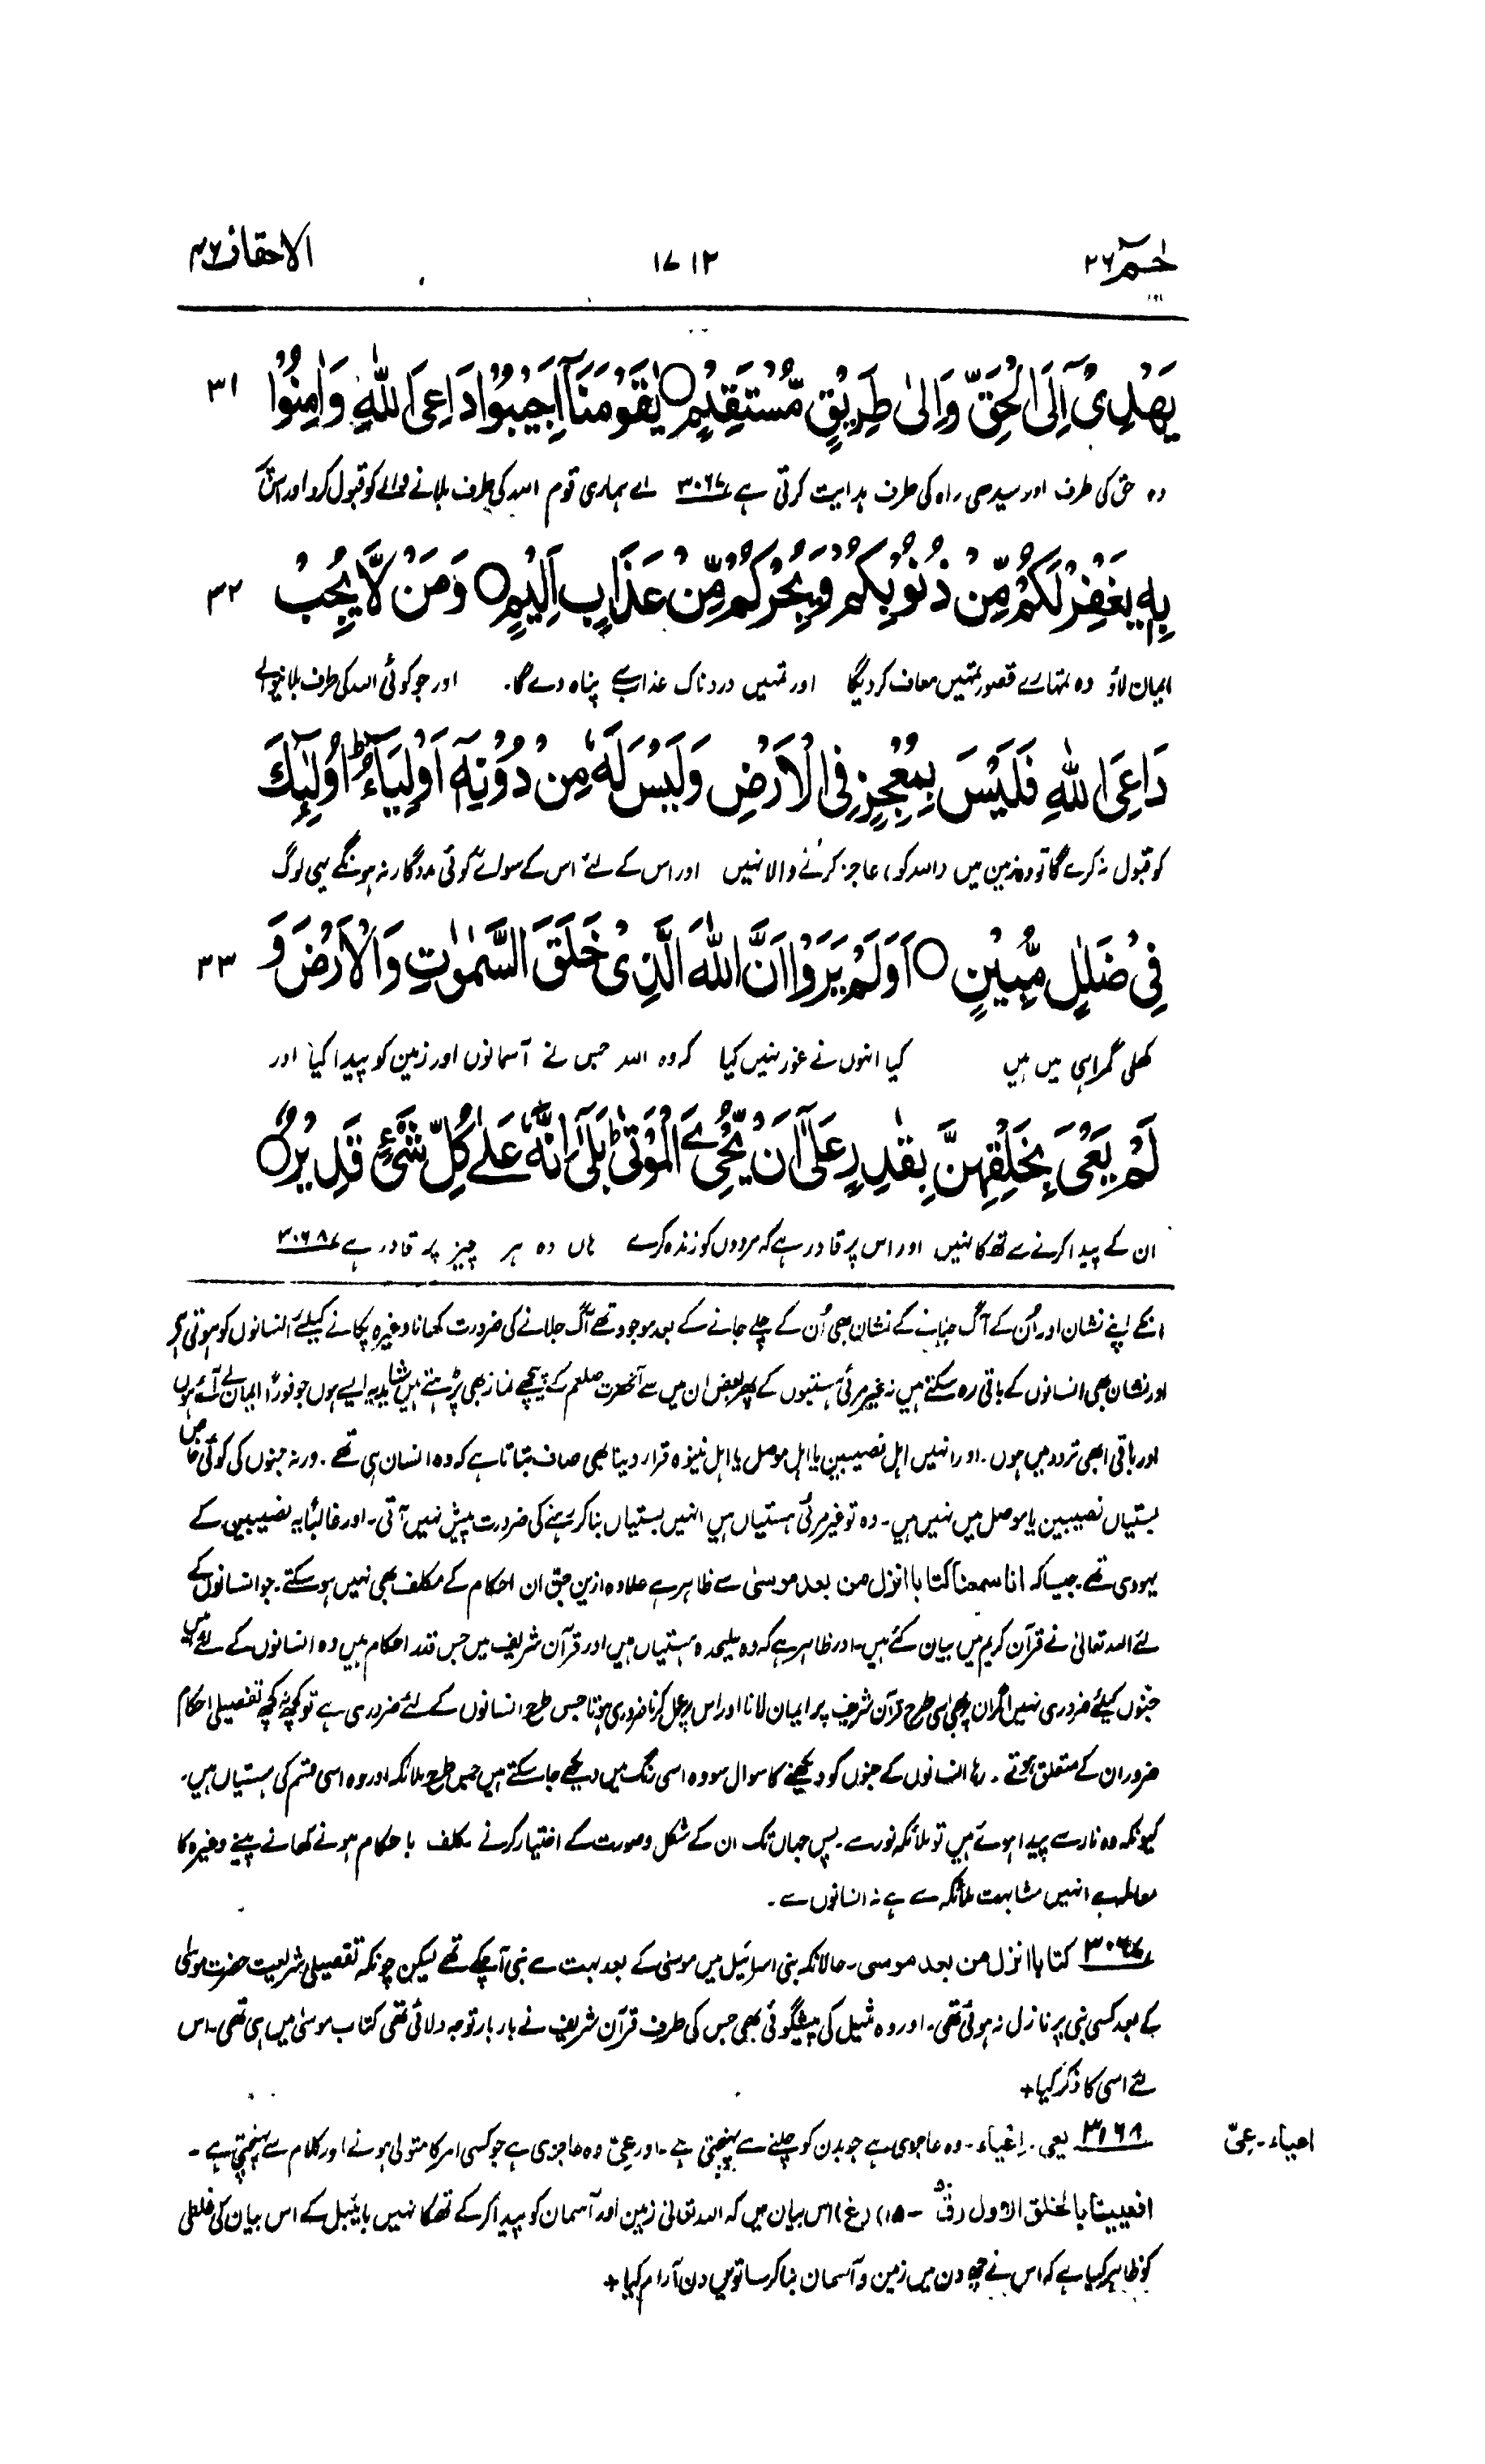 حٰمٓ ۲۶ ۱۷۱۲ الاحقاف ۴۶
يَهْدِيْٓ اِلَى الْحَقِّ وَاِلٰى طَرِيْقٍ مُّسْتَقِيْمٍ ○ يٰقَوْمَنَآ اَجِيْبُوْا دَاعِيَ اللّٰهِ وَاٰمِنُوْا ۳۱
وہ حق کی طرف اور سیدھی راہ کی طرف ہدایت کرتی ہے ۳۰۶۷ اے ہماری قوم اللہ کی طرف بلانے والے کو قبول کرو اور اس پر
بِهٖ يَغْفِرْ لَكُمْ مِّنْ ذُنُوْبِكُمْ وَيُجِرْكُمْ مِّنْ عَذَابٍ اَلِيْمٍ ○ وَمَنْ لَّا يُجِبْ ۳۲
ایمان لاؤ وہ تمہارے قصور تمہیں معاف کر دیگا اور تمہیں دردناک عذاب سے پناہ دے گا۔ اور جو کوئی اللہ کی طرف بلانیوالے
دَاعِيَ اللّٰهِ فَلَيْسَ بِمُعْجِزٍ فِي الْاَرْضِ وَلَيْسَ لَهٗ مِنْ دُوْنِهٖٓ اَوْلِيَآءُ ؕ اُولٰٓئِكَ
کو قبول نہ کرے گا تو وہ زمین میں (اللہ کو) عاجز کرنے والا نہیں اور اس کے لئے اس کے سوائے کوئی مددگار نہ ہونگے یہی لوگ
فِيْ ضَلٰلٍ مُّبِيْنٍ ○ اَوَلَمْ يَرَوْا اَنَّ اللّٰهَ الَّذِيْ خَلَقَ السَّمٰوٰتِ وَالْاَرْضَ وَ ۳۳
کھلی گمراہی میں ہیں کیا انہوں نے غور نہیں کیا کہ وہ اللہ جس نے آسمانوں اور زمین کو پیدا کیا اور
لَمْ يَعْيَ بِخَلْقِهِنَّ بِقٰدِرٍ عَلٰٓى اَنْ يُّحْيِۦَ الْمَوْتٰى ؕ بَلٰٓى اِنَّهٗ عَلٰى كُلِّ شَيْءٍ قَدِيْرٌ ○
ان کے پیدا کرنے سے تھکا نہیں اور اس پر قادر ہے کہ مردوں کو زندہ کرے ہاں وہ ہر چیز پر قادر ہے ۳۰۶۸
انکے اپنے نشان اور اُن کے آگ جلانے کے نشان بھی اُن کے چلے جانے کے بعد موجود تھے آگ جلانے کی ضرورت کھانا وغیرہ پکانے کیلئے انسانوں کو ہوتی ہے
اور نشان بھی انسانوں کے باقی رہ سکتے ہیں نہ غیر مرئی ہستیوں کے پھر بعض ان میں سے آنحضرت صلعم کے پیچھے نماز بھی پڑہتے ہیں شاید یہ ایسے ہوں جو فوراً ایمان لے آئے ہوں
اور باقی ابھی تردد میں ہوں۔ اور انہیں اہل نصیبین یا اہل موصل یا اہل نینوہ قرار دینا بھی صاف بتاتا ہے کہ وہ انسان ہی تھے۔ ورنہ جنوں کی کوئی خاص
بستیاں نصیبین یا موصل میں نہیں ہیں۔ وہ تو غیر مرئی ہستیاں ہیں انہیں بستیاں بنا کر رہنے کی ضرورت پیش نہیں آتی۔ اور غالباً یہ نصیبین کے
یہودی تھے جیسا کہ انا سمعنا کتابا انزل من بعد موسیٰ سے ظاہر ہے علاوہ ازیں جن ان احکام کے مکلف بھی نہیں ہو سکتے۔ جو انسانوں کے
لئے اللہ تعالیٰ نے قرآن کریم میں بیان کئے ہیں۔ اور ظاہر ہے کہ وہ علیحدہ ہستیاں ہیں اور قرآن شریف میں جس قدر احکام ہیں وہ انسانوں کے لئے ہیں
جنوں کیلئے ضروری نہیں اگر ان پر بھی اسی طرح قرآن شریف پر ایمان لانا اور اس پر عمل کرنا ضروری ہوتا جس طرح انسانوں کے لئے ضروری ہے تو کچھ نہ کچھ تفصیلی احکام
ضرور ان کے متعلق ہوتے۔ رہا انسانوں کے جنوں کو دیکھنے کا سوال سو وہ اسی رنگ میں دیکھے جا سکتے ہیں جس طرح ملائکہ اور وہ اسی قسم کی ہستیاں ہیں۔
کیونکہ وہ نار سے پیدا ہوئے ہیں تو ملائکہ نور سے۔ پس جہاں تک ان کے شکل و صورت کے اختیار کرنے مکلف باحکام ہونے کھانے پینے وغیرہ کا
معاملہ ہے انہیں مشابہت ملائکہ سے ہے نہ انسانوں سے۔
۳۰۶۷ کتابا انزل من بعد موسی۔ حالانکہ بنی اسرائیل میں موسیٰ کے بعد بہت سے نبی آ چکے تھے لیکن چونکہ تفصیلی شریعت حضرت موسیٰ
کے بعد کسی نبی پر نازل نہ ہوئی تھی۔ اور وہ مثیل کی پیشگوئی بھی جس کی طرف قرآن شریف نے بار بار توجہ دلائی تھی کتاب موسیٰ میں ہی تھی۔ اس
لئے اسی کا ذکر کیا+
۳۰۶۸ یعی۔ اِعْیَاء۔ وہ عاجزی ہے جو بدن کو چلنے سے پہنچتی ہے۔ اور عِیّ وہ عاجزی ہے جو کسی امر کا متولی ہونے اور کلام سے پہنچتی ہے۔
اعیاء۔ عِیّ
افعیینا بالخلق الاول (قٓ ۱۵) (غ) اس بیان میں کہ اللہ تعالیٰ زمین اور آسمان کو پیدا کر کے تھکا نہیں بائیبل کے اس بیان کی غلطی
کو ظاہر کیا ہے کہ اس نے چھ دن میں زمین و آسمان بنا کر ساتویں دن آرام کیا+